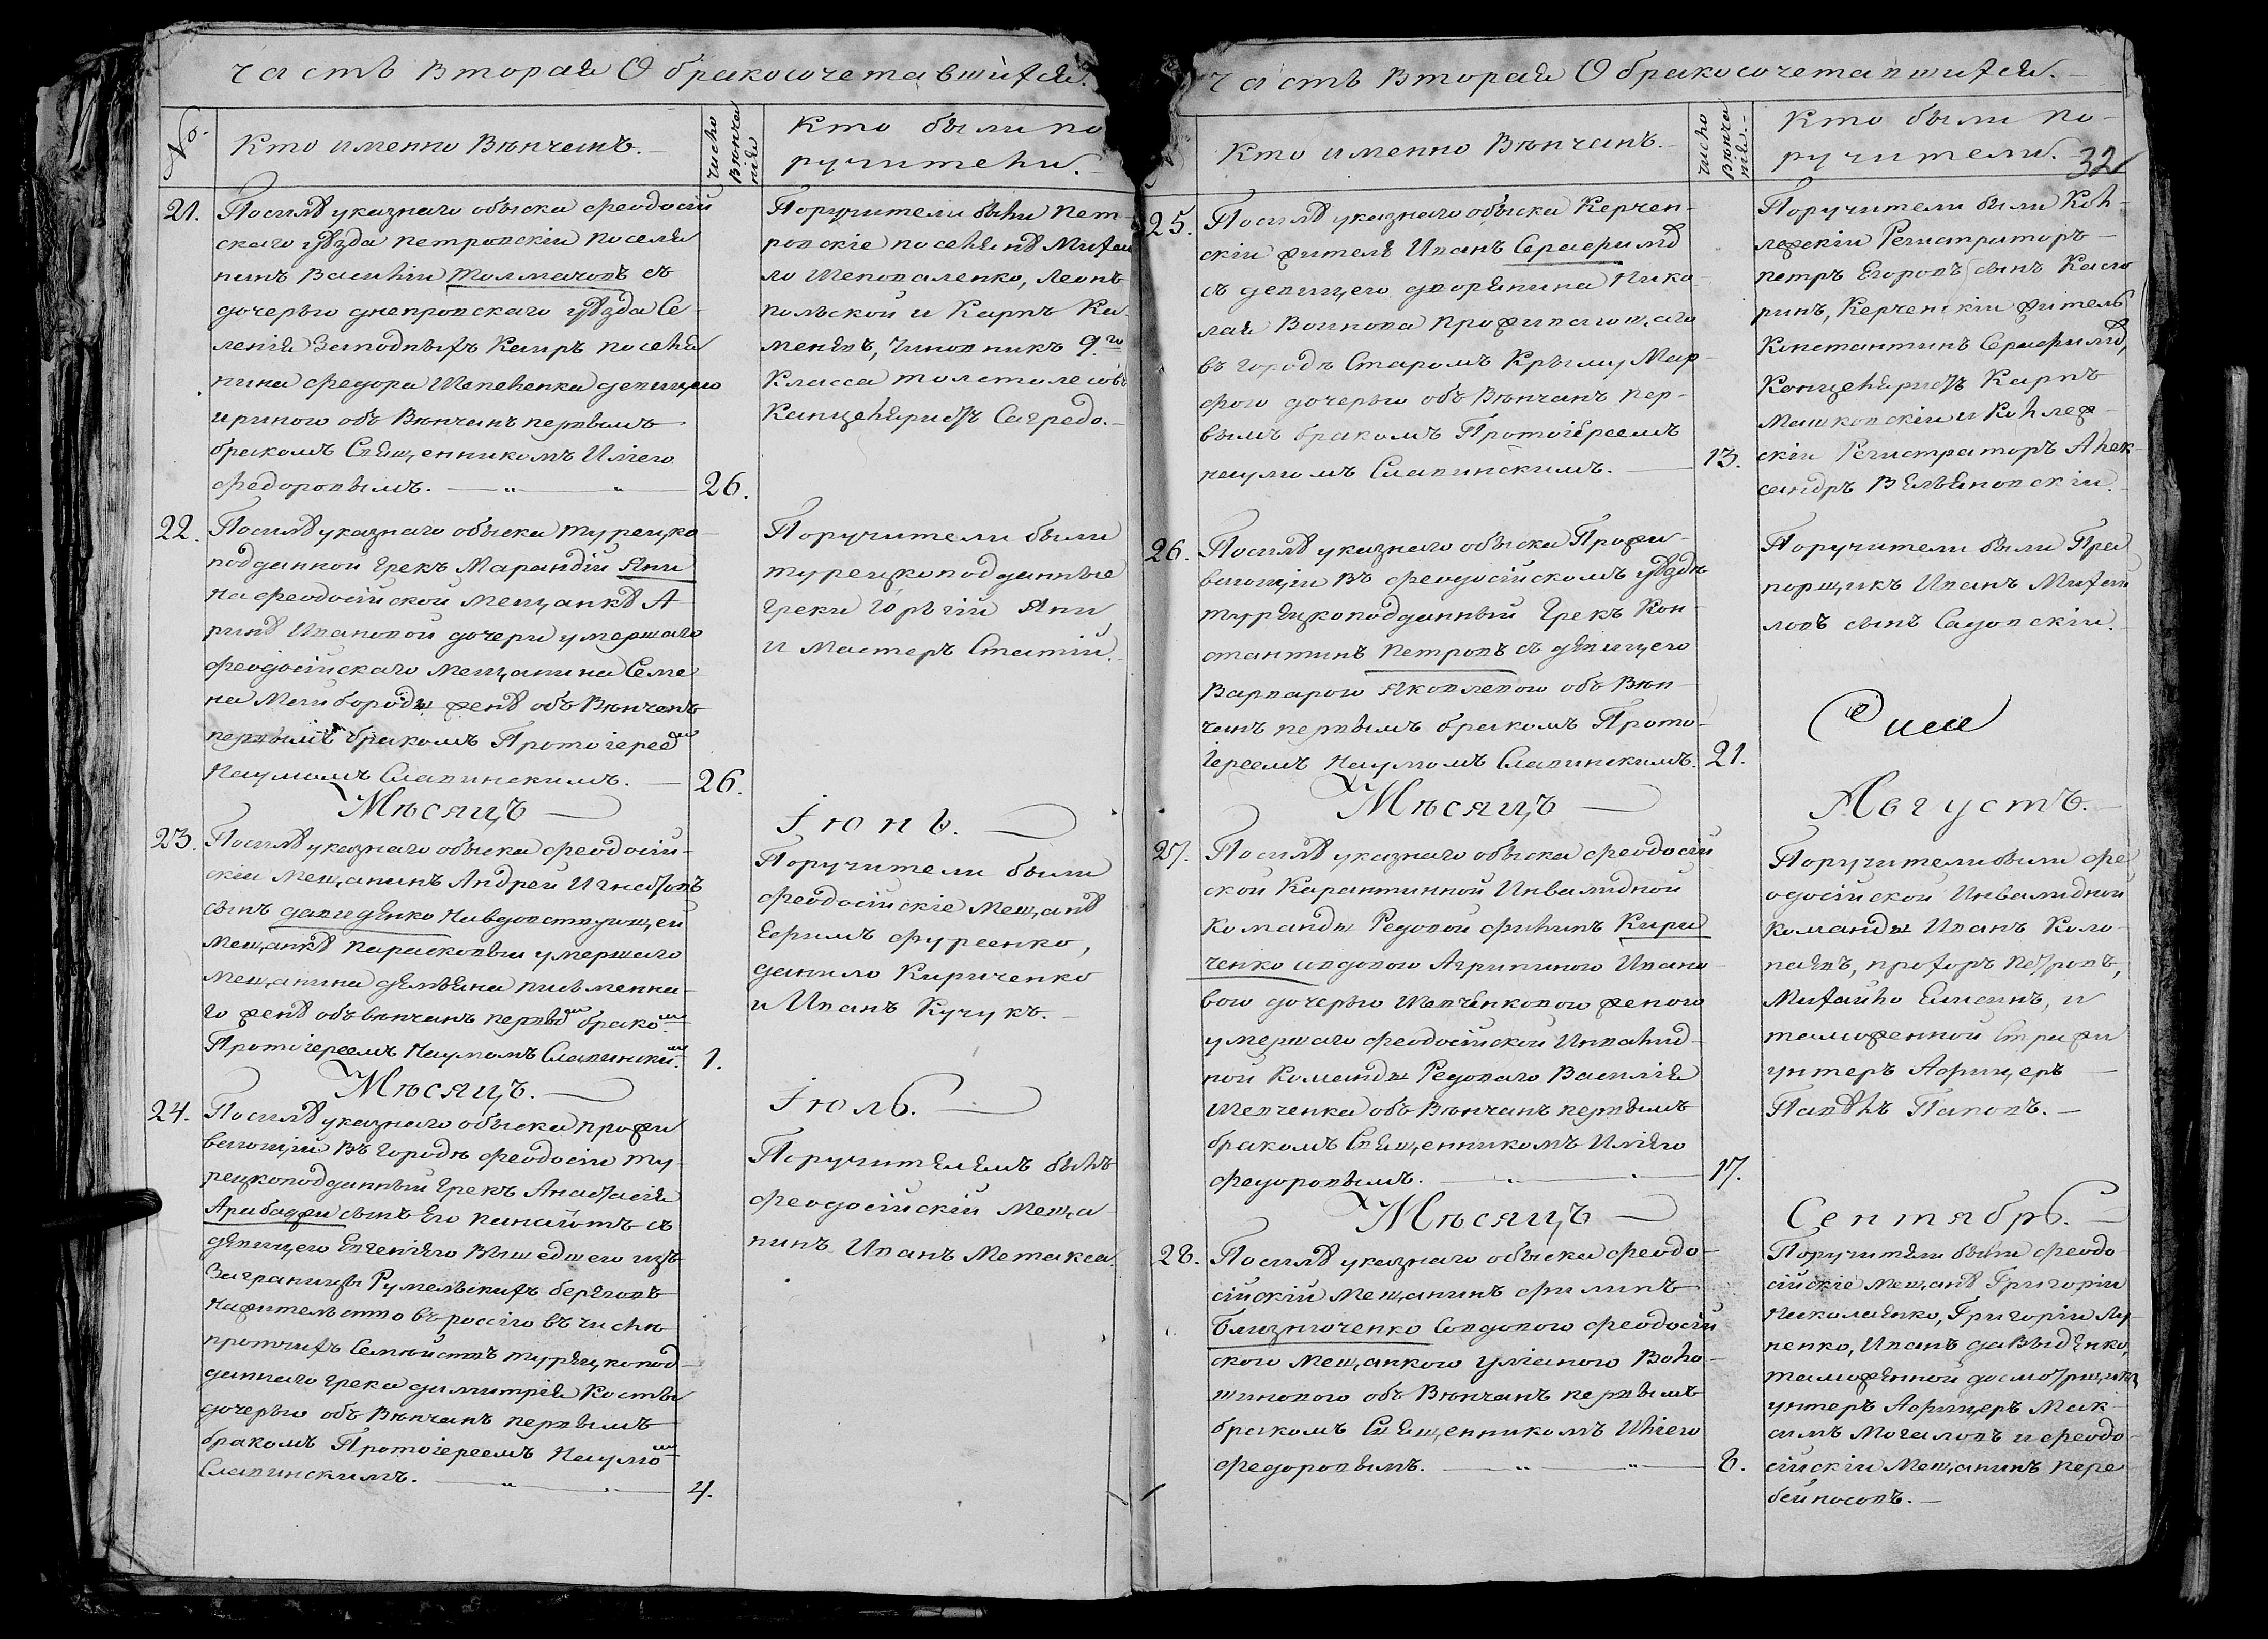 Часть Вторая О бракосочетавшихся.
№
Кто именно Вѣнчанъ.
Число Вѣнча
нія
Кто были по
ручители.
21. Послѣ указнаго обыска феодосій
скаго уѣзда петровскій поселя
нинъ Василій Толмачовъ съ
дочерью днепровскаго уѣзда Се-
ленія поселя
нина федора Шепеленка девицею
ириною объ Вѣнчанъ первымъ
бракомъ Священникомъ Иліею
федоровымъ. 26.
Поручители были пет-
ровскіе поселянѣ Михаи
ло Шеповаленко, Леонъ
польской и Карпъ Ка
меневъ, Чиновникъ 9.го
Класса
Канцеляристъ Сагредо.
22. Послѣ указнаго обыска турецко
подданной грекъ Марандій Яни
на феодосійской мещанкѣ А
ринѣ Ивановой дочери умершаго
феодосійскаго мещанина Семе
на женѣ объ Вѣнчанъ
первымъ бракомъ Протоіереемъ
Наумомъ Славинскимъ. 26.
Поручители были
турецкоподданные
греки Іорьгій Яни,
и Мастеръ Статій.
Мѣсяцъ Іюнь.
23. Послѣ указнаго обыска феодосій-
скій мещанинъ Андрей Игнатовъ
сынъ давиденко навдовствующей
мещанкѣ парасковьи умершаго
мещанина демьяна письменна-
го женѣ объ вѣнчанъ первымъ бракомъ
Протоіереемъ Наумомъ Славинскимъ. 1.
Поручители были
феодосійскіе мещанѣ
Ефимъ фурсенко,
данило Кириченко
и Иванъ Кучукъ.
Мѣсяцъ. Іюль.
24. Послѣ указнаго обыска прожи
вающій въ городѣ феодосіи ту-
рецкоподданный грекъ Анастасія
Арабаджи сынъ Его панаіотъ съ
девицею Евгеніею вышедшею изъ
Заграницы Румельскихъ береговъ
нажительство въ россію въ числѣ
протчихъ Семействъ турецкопод-
даннаго грека димитрія Косты
дочерью объ Вѣнчанъ первымъ
бракомъ Протоіереемъ Наумомъ
Славинскимъ. 4.
Поручителемъ былъ
феодосійскій меща
нинъ Иванъ Метакса.
Часть Вторая О бракосочетавшихся.
Кто именно Вѣнчанъ.
Число
Вѣнча
нія.
Кто были по-
ручители.
32
25. Послѣ указнаго обыска Керчен-
скій житель Иванъ Серафимъ
съ девицею дворянина Нико-
лая Воинова проживающаго
въ городѣ Старомъ Крыму Мар-
фою дочерью объ Вѣнчанъ пер-
вымъ бракомъ Протоіереемъ
наумомъ Славинскимъ. 13.
Поручители были Кол-
лежскій Регистраторъ
петръ Егоровъ сынъ
Керченскій житель
Канстантинъ Серафимъ,
Канцеляристъ Карпъ
Машковскій и Коллеж-
скій Регистраторъ Алек-
сандръ
26. Послѣ указнаго обыска Прожи-
вающій въ феодосійскомъ уѣздѣ
турецкоподданный Грекъ Кон-
стантинъ петровъ съ девицею
Варварою Яковлевою объ Вѣн-
чанъ первымъ бракомъ Прото-
іереемъ Наумомъ Славинскимъ. 21.
Поручители были Пра
порщикъ Иванъ Михай
ловъ сынъ Садовскій.
Мѣсяцъ Августъ.
27. Послѣ указнаго обыска феодосій
ской Карантинной Инвалидной
Команды Редовой филипъ Кири
ченко совдовою Агрипиною Ивано-
вою дочерью Шевченковою женою
умершаго феодосійской Инвалид-
ной Команды Редоваго Василія
Шевченка объ Вѣнчанъ первымъ
бракомъ Священникомъ Иліею
федоровымъ. 17.
Поручители были фе
одосійской Инвалидной
Команды Иванъ Коло-
паевъ, прохоръ петровъ,
Михайло и
таможенной Стражи
унтеръ Афицеръ
Павѣлъ Паповъ.
Мѣсяцъ Сентябрь.
28. Послѣ указнаго обыска феодо-
сійскій мещанинъ филипъ
Близнюченко Совдовою феодосій
скою мещанкою уліаною Воло-
шиновою объ Вѣнчанъ первымъ
бракомъ Священникомъ Иліею
федоровымъ. 8.
Поручители были феодо
сійскіе мещанѣ Григорій
Николаенко, Григорій Лу-
ценко, Иванъ даВыденко,
таможенной досмотрщикъ
унтеръ Афицеръ Мак-
симъ Могаловъ и феодо-
сійскій мещанинъ пере
бейносовъ.